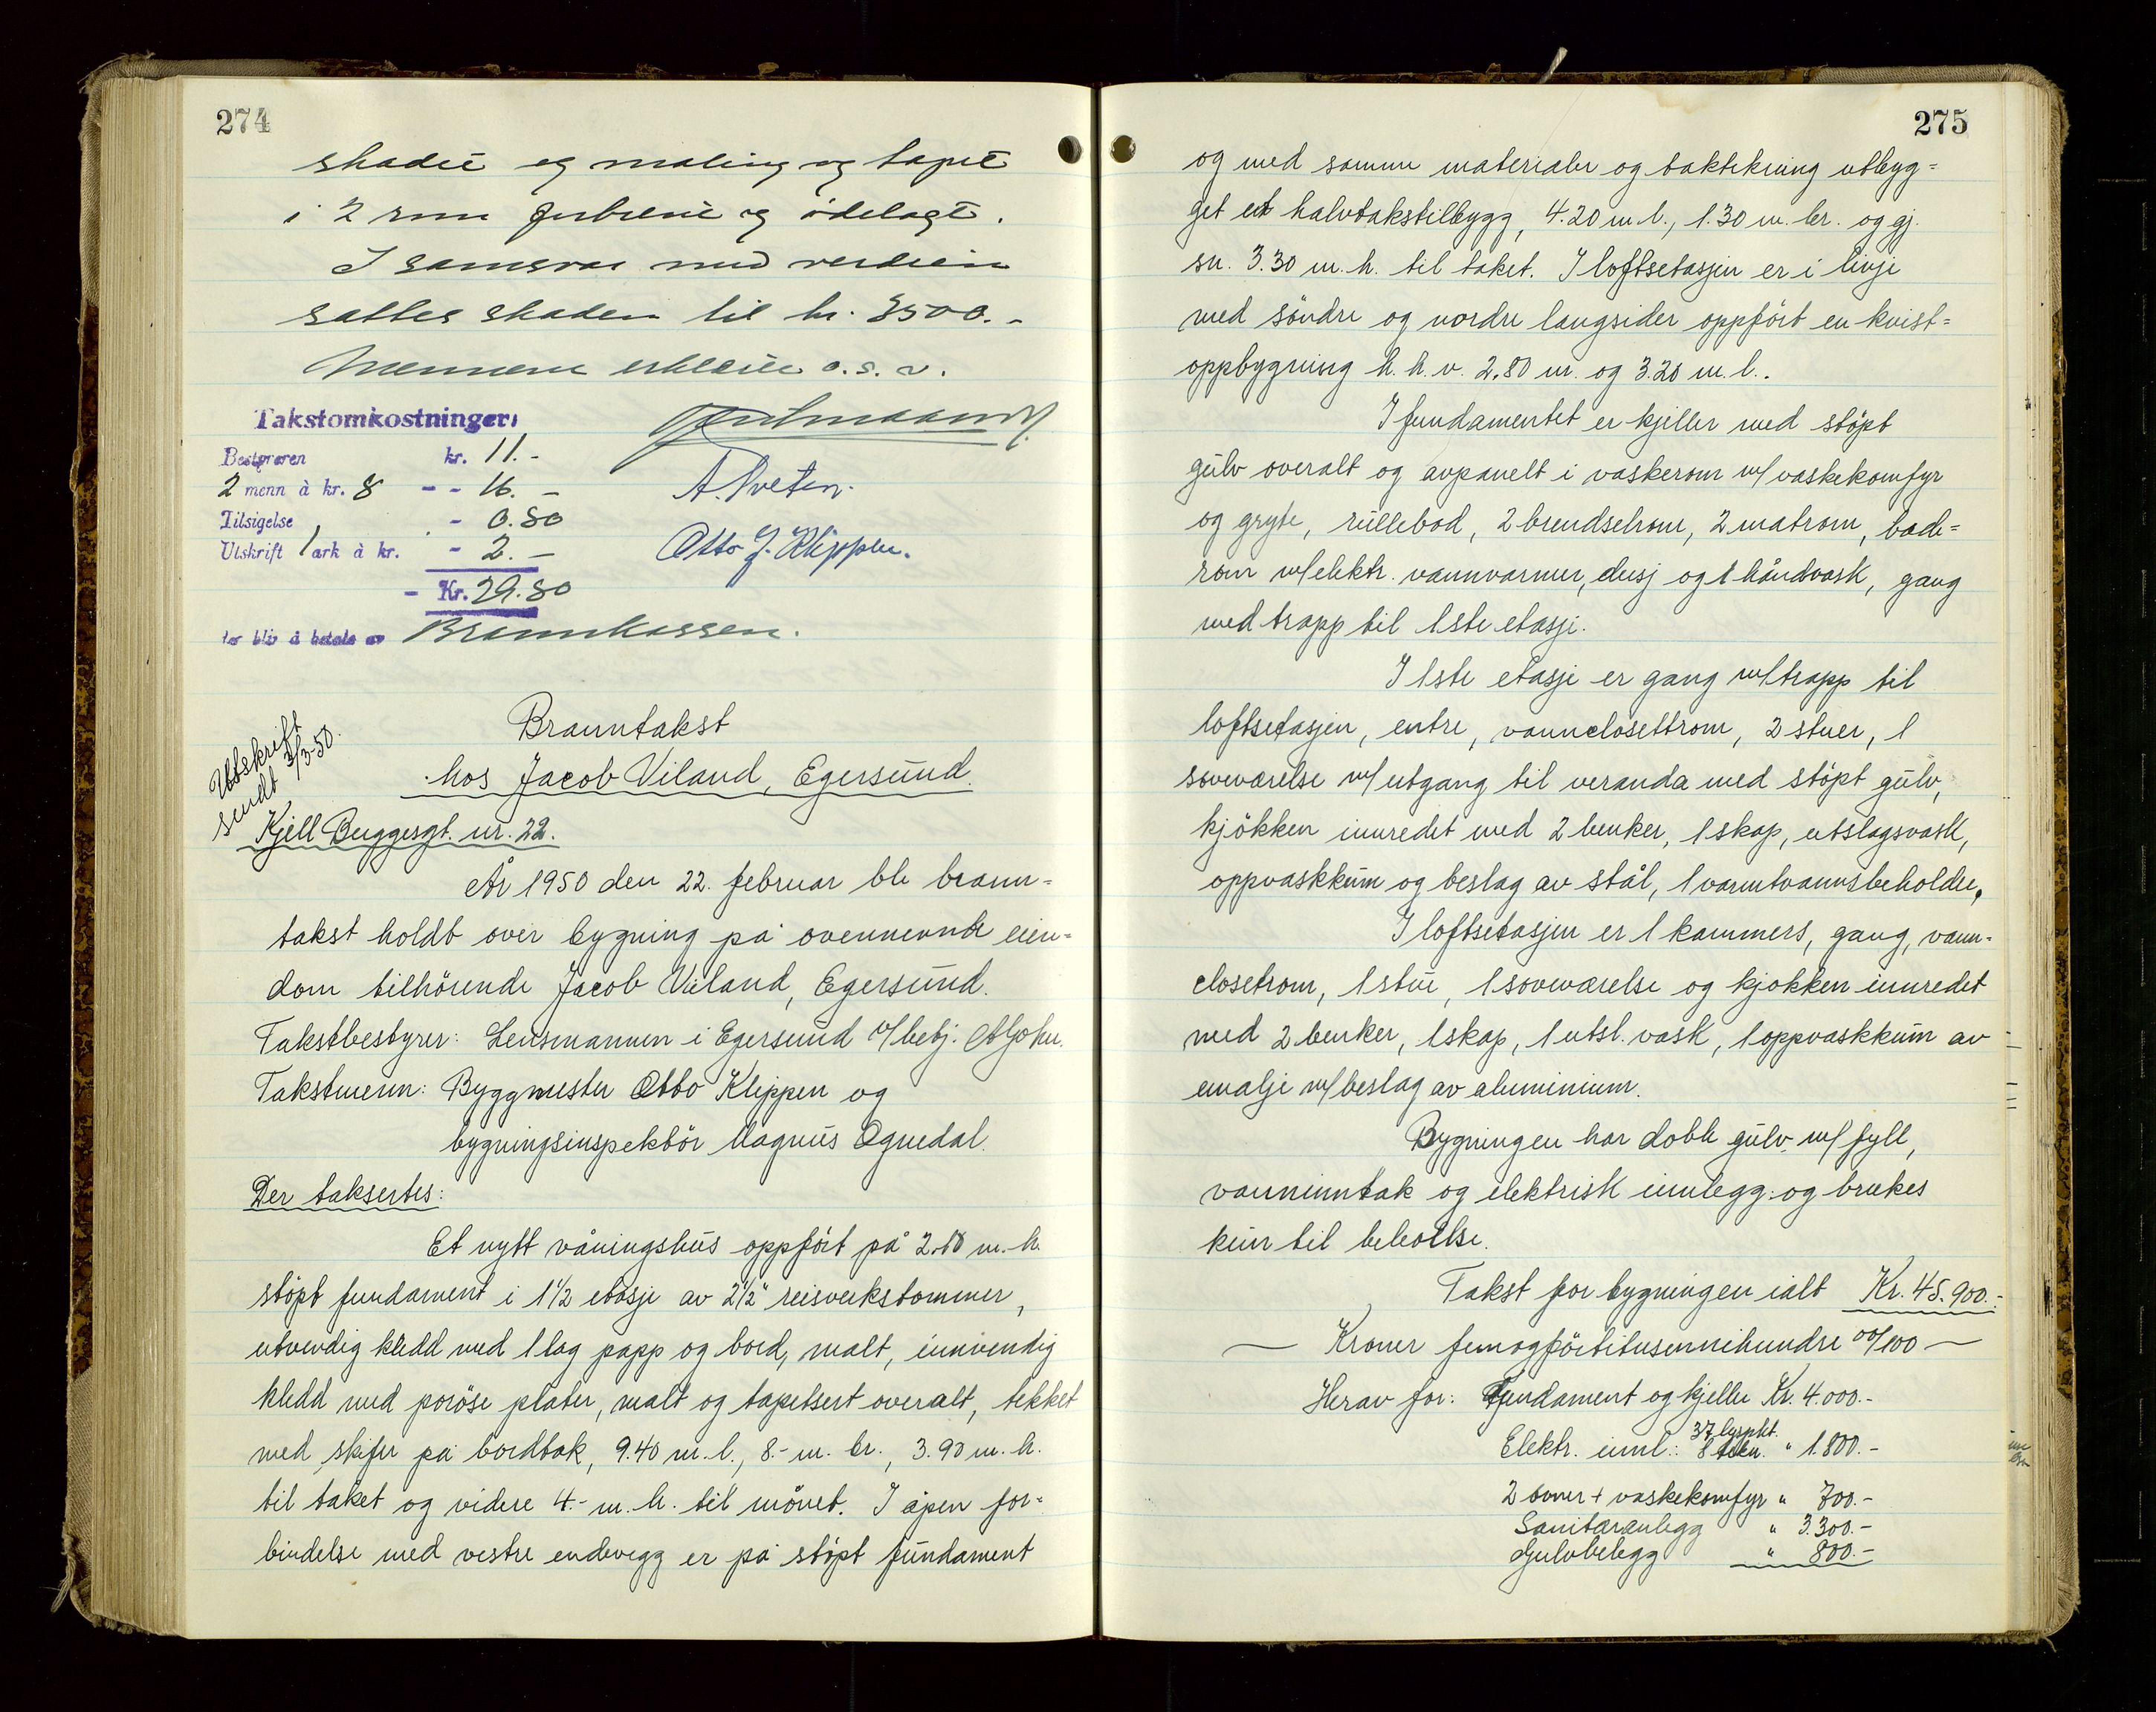 274
skadet og maling og tapet
i 2 rum forbrent og ødelagt.
I samsvar med verdien
settes skaden til kr. 3500.-
Mennene erklærte o.s.v.
Takstomkostninger:
Bestyreren kr. 11.-
2 menn à kr. 8 - - 16.-
Tilsigelse - 0.80
Utskrift 1 ark à kr. - 2.-
- Kr. 29.80
som blir å betale av Brannkassen.
A. Sveten.
Otto J. Klippen.
Utskrift
sendt 3/3-50.
Branntakst
hos Jacob Viland, Egersund.
Kjell Buggesgt. nr. 22.
År 1950 den 22. februar ble brann=
takst holdt over bygning på ovennevnte eien=
dom tilhörende Jacob Viland, Egersund.
Takstbestyrer: Lensmannen i Egersund v/betj.
Takstmenn: Byggmester Otto Klippen og
bygningsinspektör Magnus Ognedal.
Der taksertes:
Et nytt våningshus oppfört på 2.10 m.h.
stöpt fundament i 1 1/2 etasje av 2 1/2" reisverkstommer,
utvendig kledd med 1 lag papp og bord, malt, innvendig
kledd med poröse plater, malt og tapetsert overalt, tekket
med skifer på bordtak, 9.40 m.l., 8.- m. br., 3.90 m.h.
til taket og videre 4.- m.h. til mönet. I åpen for=
bindelse med vestre endevegg er på stöpt fundament
275
og med samme materialer og taktekning utbyg=
get et halvtakstilbygg, 4.20 m.l., 1.30 m. br. og gj.
sn. 3.30 m.h. til taket. I loftsetasjen er i linje
med söndre og nordre langsider oppfört en kvist=
oppbygning h.h.v. 2.80 m. og 3.20 m.l..
I fundamentet er kjeller med stöpt
gulv overalt og avpanelt i vaskerom m/vaskekomfyr
og gryte, rullebod, 2 brendselrom, 2 matrom, bade=
rom m/elektr. vannvarmer, dusj og 1 håndvask, gang
med trapp til 1ste etasje.
I 1ste etasje er gang m/trapp til
loftsetasjen, entre, vannclosettrom, 2 stuer, 1
soveværelse m/utgang til veranda med stöpt gulv,
kjökken innredet med 2 benker, 1 skap, utslagsvask,
oppvaskkum og beslag av stål, 1 varmtvannsbeholder.
I loftsetasjen er 1 kammers, gang, vann=
closetrom, 1 stue, 1 soveværelse og kjökken innredet
med 2 benker, 1 skap, 1 utsl. vask, 1 oppvaskkum av
emalje m/beslag av aluminium.
Bygningen har doble gulv m/fyll,
vanninntak og elektrisk innlegg: og brukes
kun til beboelse.
Takst for bygningen ialt Kr. 45.900.-
— Kroner femogförtitusennihundre 00/100 —
Herav for: Fundament og kjeller Kr. 4.000.-
37 lyspkt.
Elektr. innl.: 8 " 1.800.-
2 ovner + vaskekomfyr " 700.-
Sanitæranlegg " 3.300.-
Gulvbelegg " 800.-